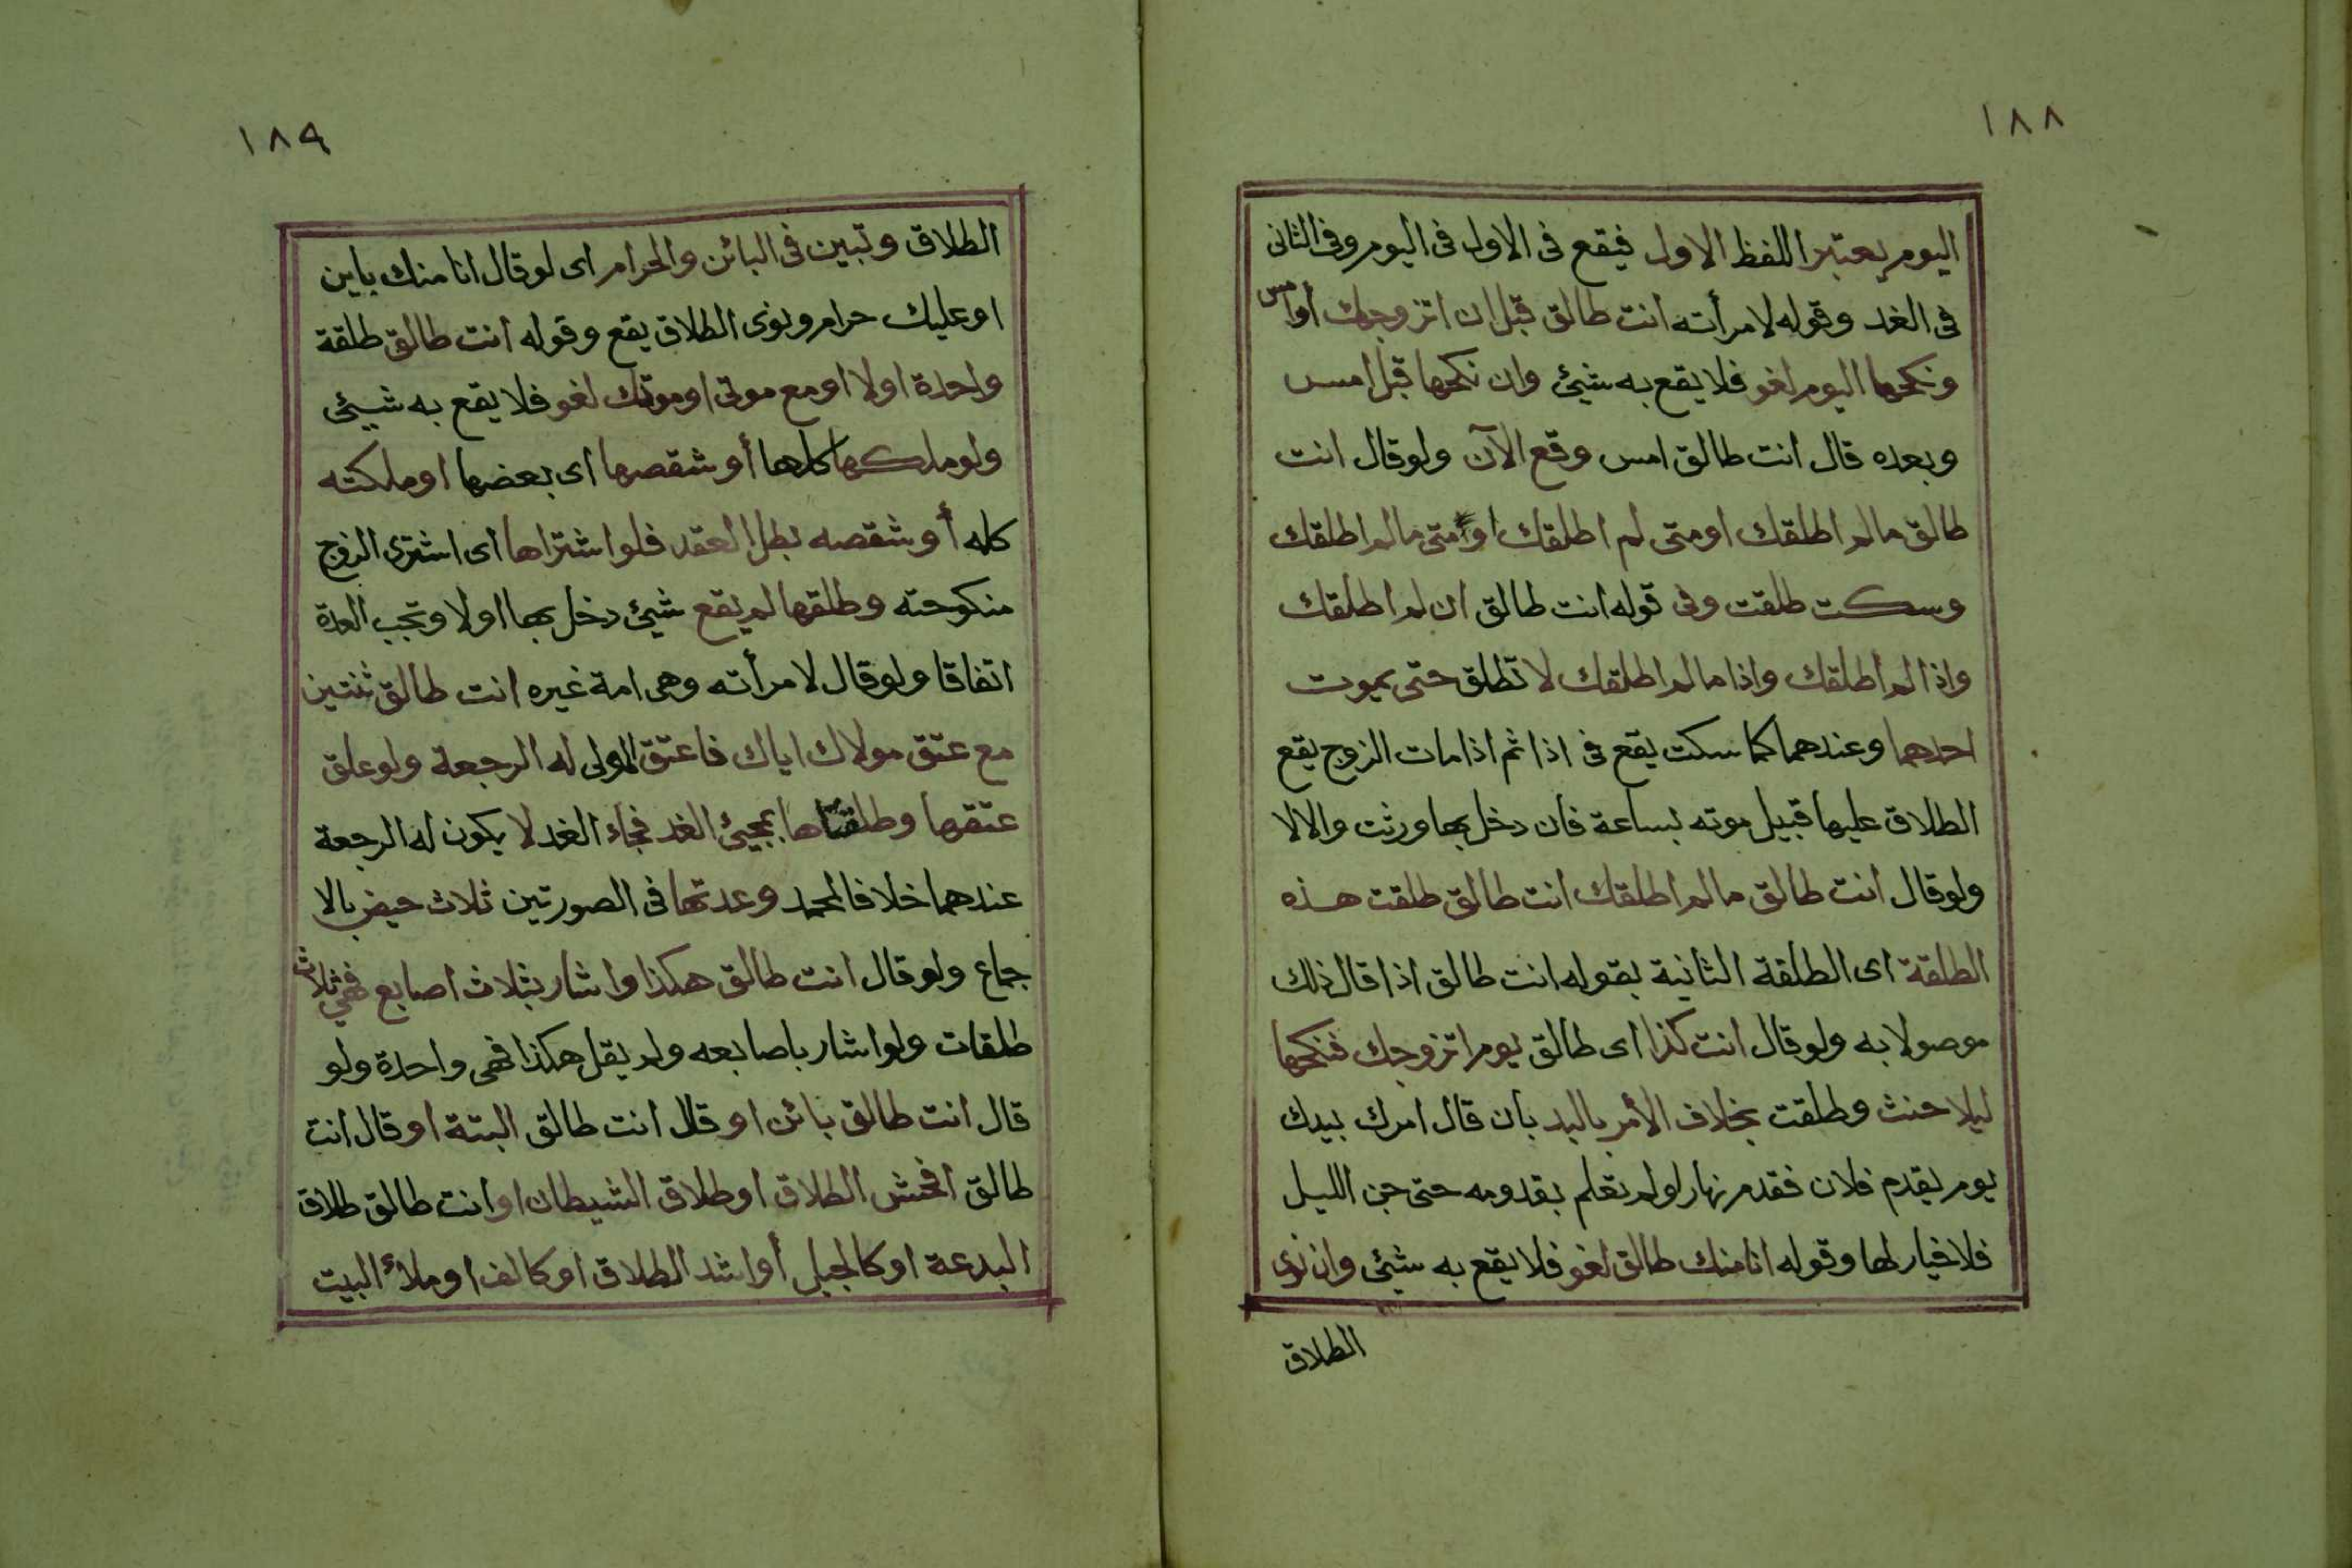 ١٨٨
اليوم يعتبر اللفظ الاول فيقع فى الاول فى اليوم وفى الثانى
فى الغد وقوله لامرأته انت طالق قبل ان اتزوجك أو امس
ونكحها اليوم لغو فلا يقع به شيئ وان نكحها قبل امس
وبعده قال انت طالق امس وقع الآن ولو قال انت
طالق مالم اطلقك او متى لم اطلقك او متى مالم اطلقك
وسكت طلقت وفى قوله انت طالق ان لم اطلقك
واذا لم اطلقك واذا مالم اطلقك لا تطلق حتى يموت
احدهما وعندهما كما سكت يقع فى اذا ثم اذا مات الزوج يقع
الطلاق عليها قبيل موته بساعة فان دخل بها ورثت والا لا
ولو قال انت طالق مالم اطلقك انت طالق طلقت هذه
الطلقة اى الطلقة الثانية بقوله انت طالق اذا قال ذلك
موصولا به ولو قال انت كذا اى طالق يوم اتزوجك فنكحها
ليلا حنث وطلقت بخلاف الأمر باليد بان قال امرك بيدك
يوم يقدم فلان فقدم نهارا ولم تعلم بقدومه حتى جن الليل
فلا خيار لها وقوله انا منك طالق لغو فلا يقع به شيئ وان نوى
الطلاق
١٨٩
الطلاق وتبين فى البائن والحرام اى لو قال انا منك باين
او عليك حرام ونوى الطلاق يقع وقوله انت طالق طلقة
واحدة اولا او مع موتى او موتك لغو فلا يقع به شيئ
ولو ملكها كلها أو شقصها اى بعضها او ملكته
كله أو شقصه بطل العقد فلو اشتراها اى اشترى الزوج
منكوحته وطلقها لم يقع شيئ دخل بها اولا وتجب العدة
اتفاقا ولو قال لامرأته وهى امة غيره انت طالق ثنتين
مع عتق مولاك اياك فاعتق المولى له الرجعة ولو علق
عتقها وطلقتاها بمجيئ الغد فجاء الغد لا يكون له الرجعة
عندهما خلافا لمحمد وعدتها فى الصورتين ثلاث حيض بالا
جماع ولو قال انت طالق هكذا واشار بثلاث اصابع فهي ثلاث
طلقات ولو اشار باصابعه ولم يقل هكذا فهى واحدة ولو
قال انت طالق بائن او قال انت طالق البتة او قال انت
طالق افحش الطلاق او طلاق الشيطان او انت طالق طلاق
البدعة او كالجبل أو اشد الطلاق او كالف او ملأ البيت